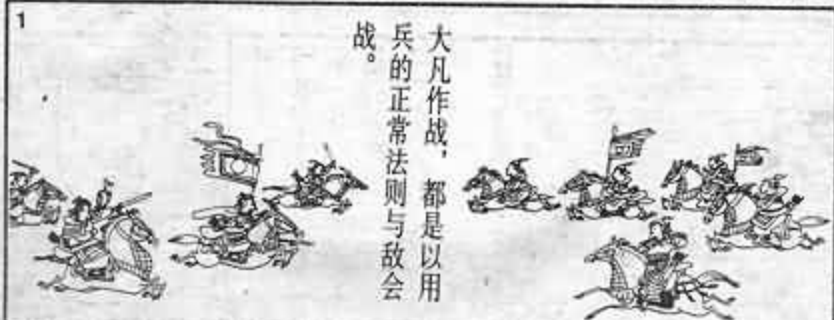 1
大凡作战，都是以用
兵的正常法则与敌会
战。